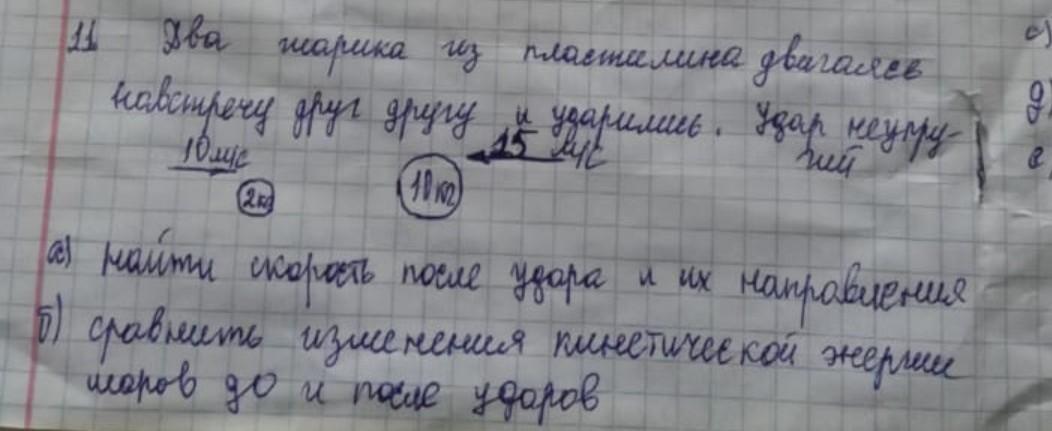 11. Два шарика из пластилина двигаясь
навстречу друг другу и ударились. Удар неупру-
гий
10 м/с
15 м/с
2кг
10кг
а) найти скорость после удара и их направления
б) сравнить изменения кинетической энергии
шаров до и после ударов
с)
д)
е)